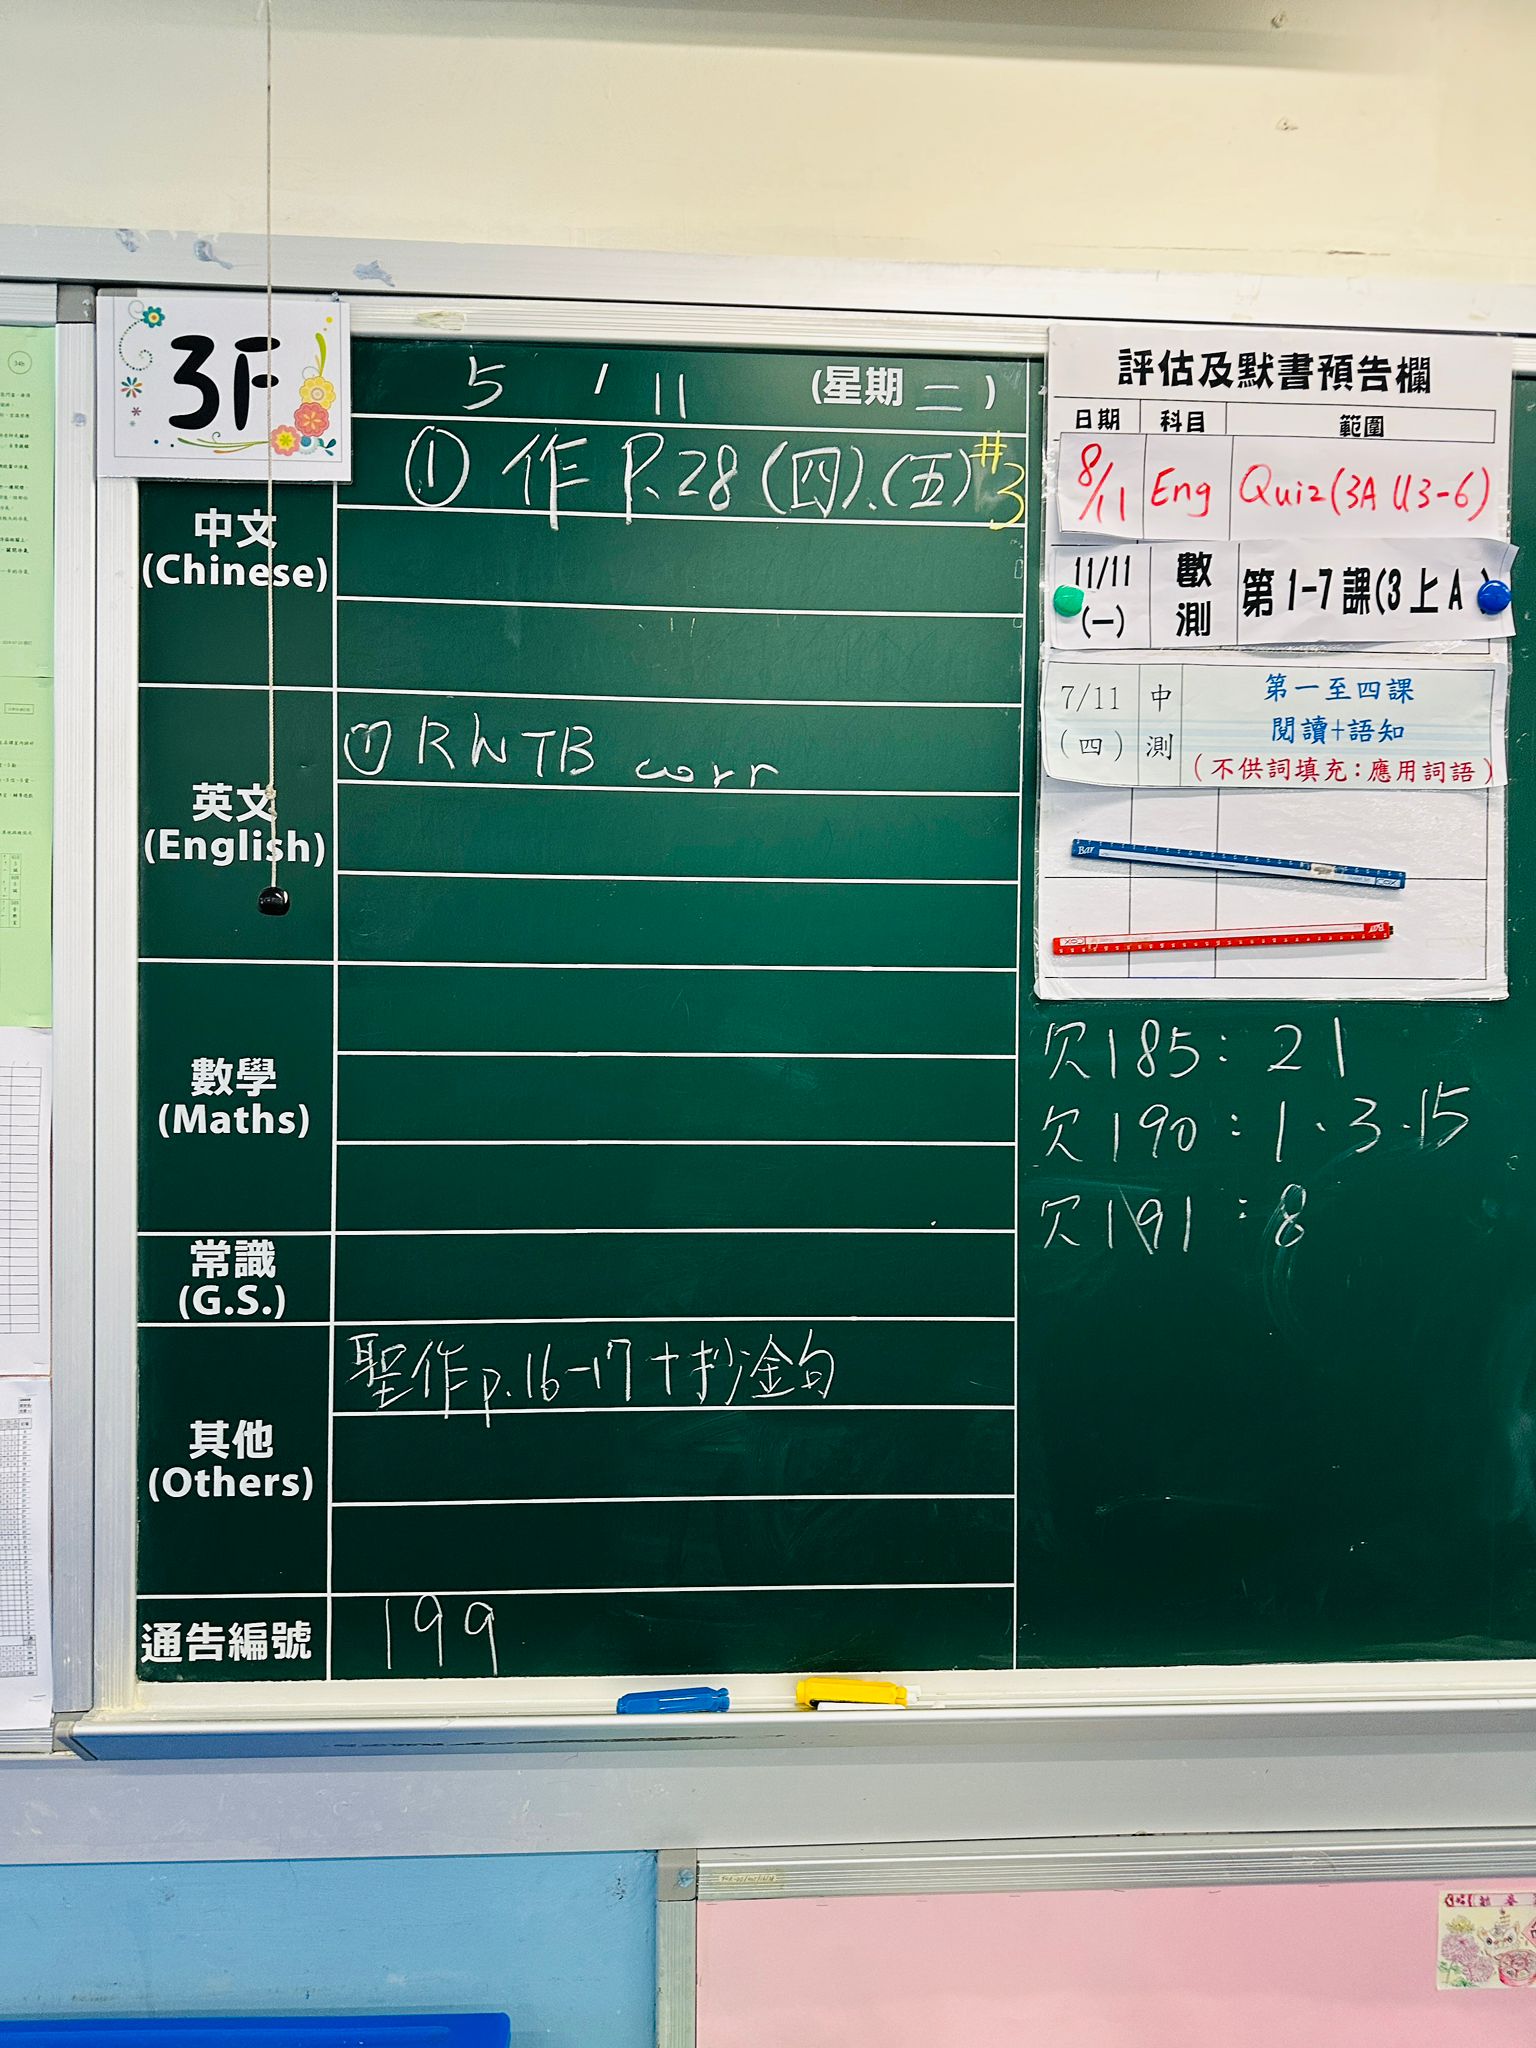 3F
5 / 11 (星期 二 )
① 作 P.28 (四).(五) #3
中文
(Chinese)
① RWTB corr
英文
(English)
數學
(Maths)
常識
(G.S.)
聖作 p.16-17 +抄金句
其他
(Others)
通告編號 199
評估及默書預告欄
日期 科目 範圍
8/11 Eng Quiz(3A U3-6)
11/11 (一) 數測 第1-7課(3上A )
7/11 (四) 中測 第一至四課
閱讀+語知
(不供詞填充:應用詞語)
Bar
Bar
欠185: 21
欠190: 1.3.15
欠191: 8